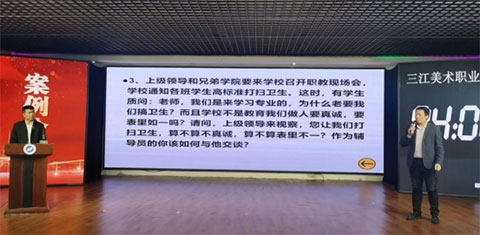 案例
●3、上级领导和兄弟学院要来学校召开职教现场会，
学校通知各班学生高标准打扫卫生。这时，有学生
质问：老师，我们是来学习专业的，为什么老要我
们搞卫生？而且学校不是教育我们做人要真诚，要
表里如一吗？请问，上级领导来视察，您让我们打
扫卫生，算不算不真诚，算不算表里不一？作为辅
导员的你该如何与他交谈？
三江美术职业
04:0